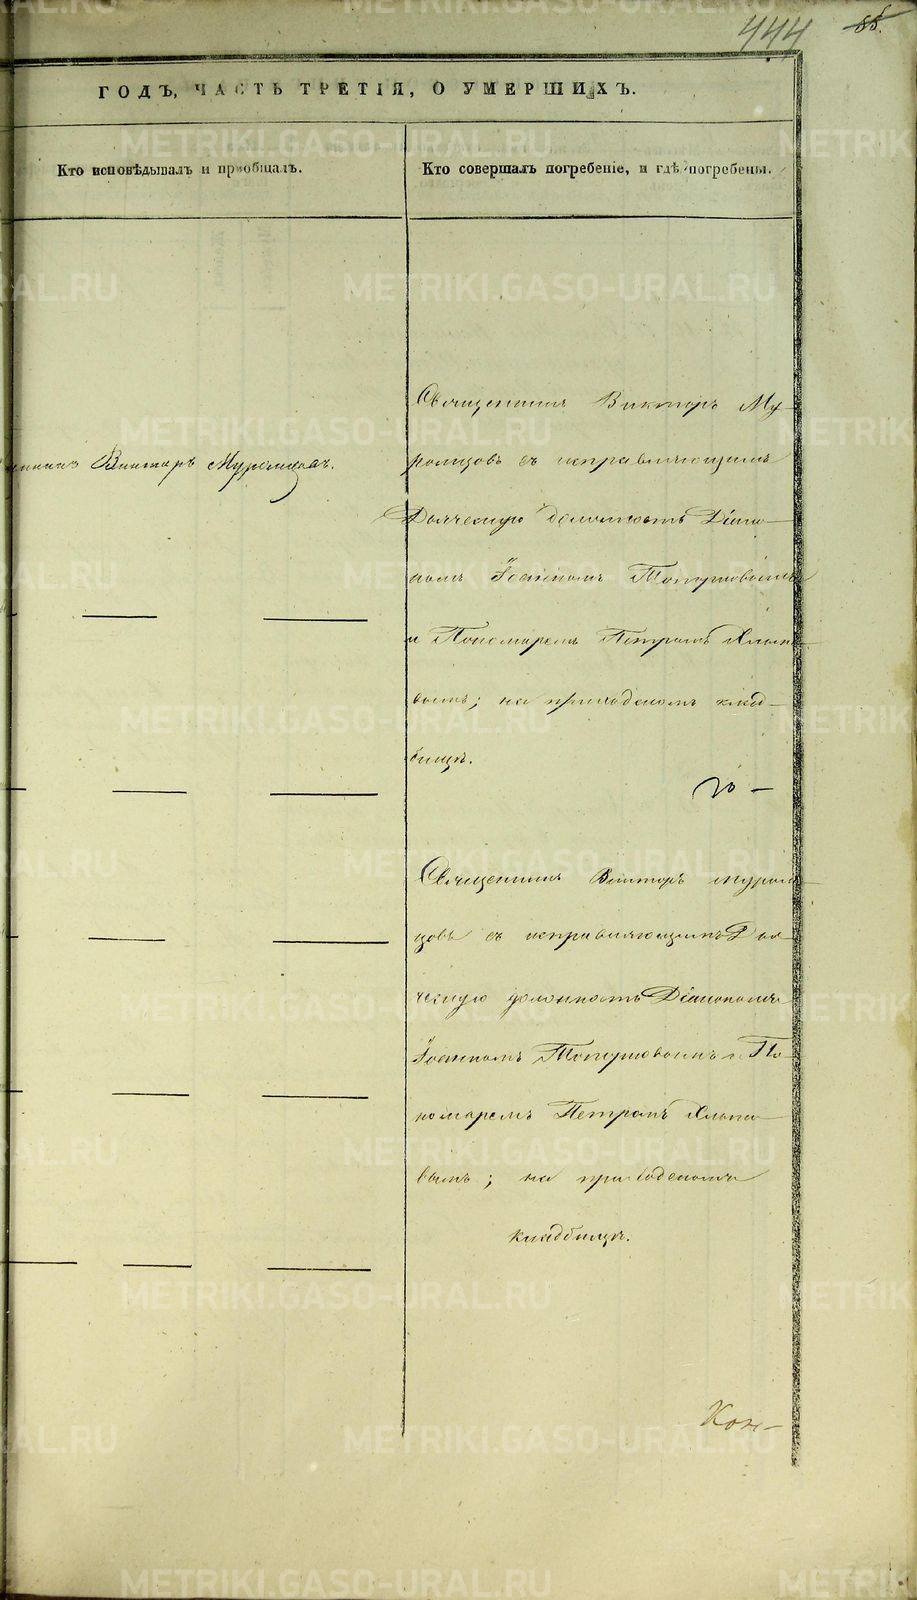 444
85.
ГОДЪ, ЧАСТЬ ТРЕТІЯ, О УМЕРШИХЪ.
Кто исповѣдывалъ и пріобщалъ.
Кто совершалъ погребеніе, и гдѣ погребены.
Священникъ Викторъ Му-
ромцовъ съ исправляющимъ
Дьяческую должность Діако-
номъ Іоанномъ Топорковымъ
и Пономаремъ Петромъ
вымъ; на приходскомъ клад-
бищѣ.
Викторъ Муромцовъ.
Священникъ Викторъ Муром-
цовъ съ исправляющимъ Дья-
ческую должность Діакономъ
Іоанномъ Топорковымъ и По-
номаремъ Петромъ
вымъ; на приходскомъ
кладбищѣ.
METRIKI.GASO-URAL.RU